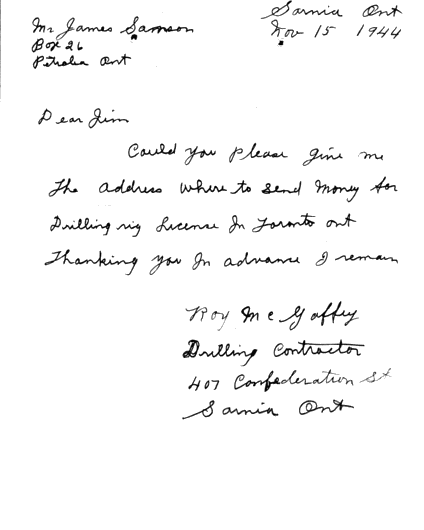 Sarnia Ont
Nov 15 1944
Mr James Samson
Box 26
Petrolia Ont
Dear Jim
Could you please give me
the address where to send money for
Drilling rig License In Toronto ont
Thanking you In advance I remain
Roy McGaffey
Drilling Contractor
407 Confederation St
Sarnia Ont